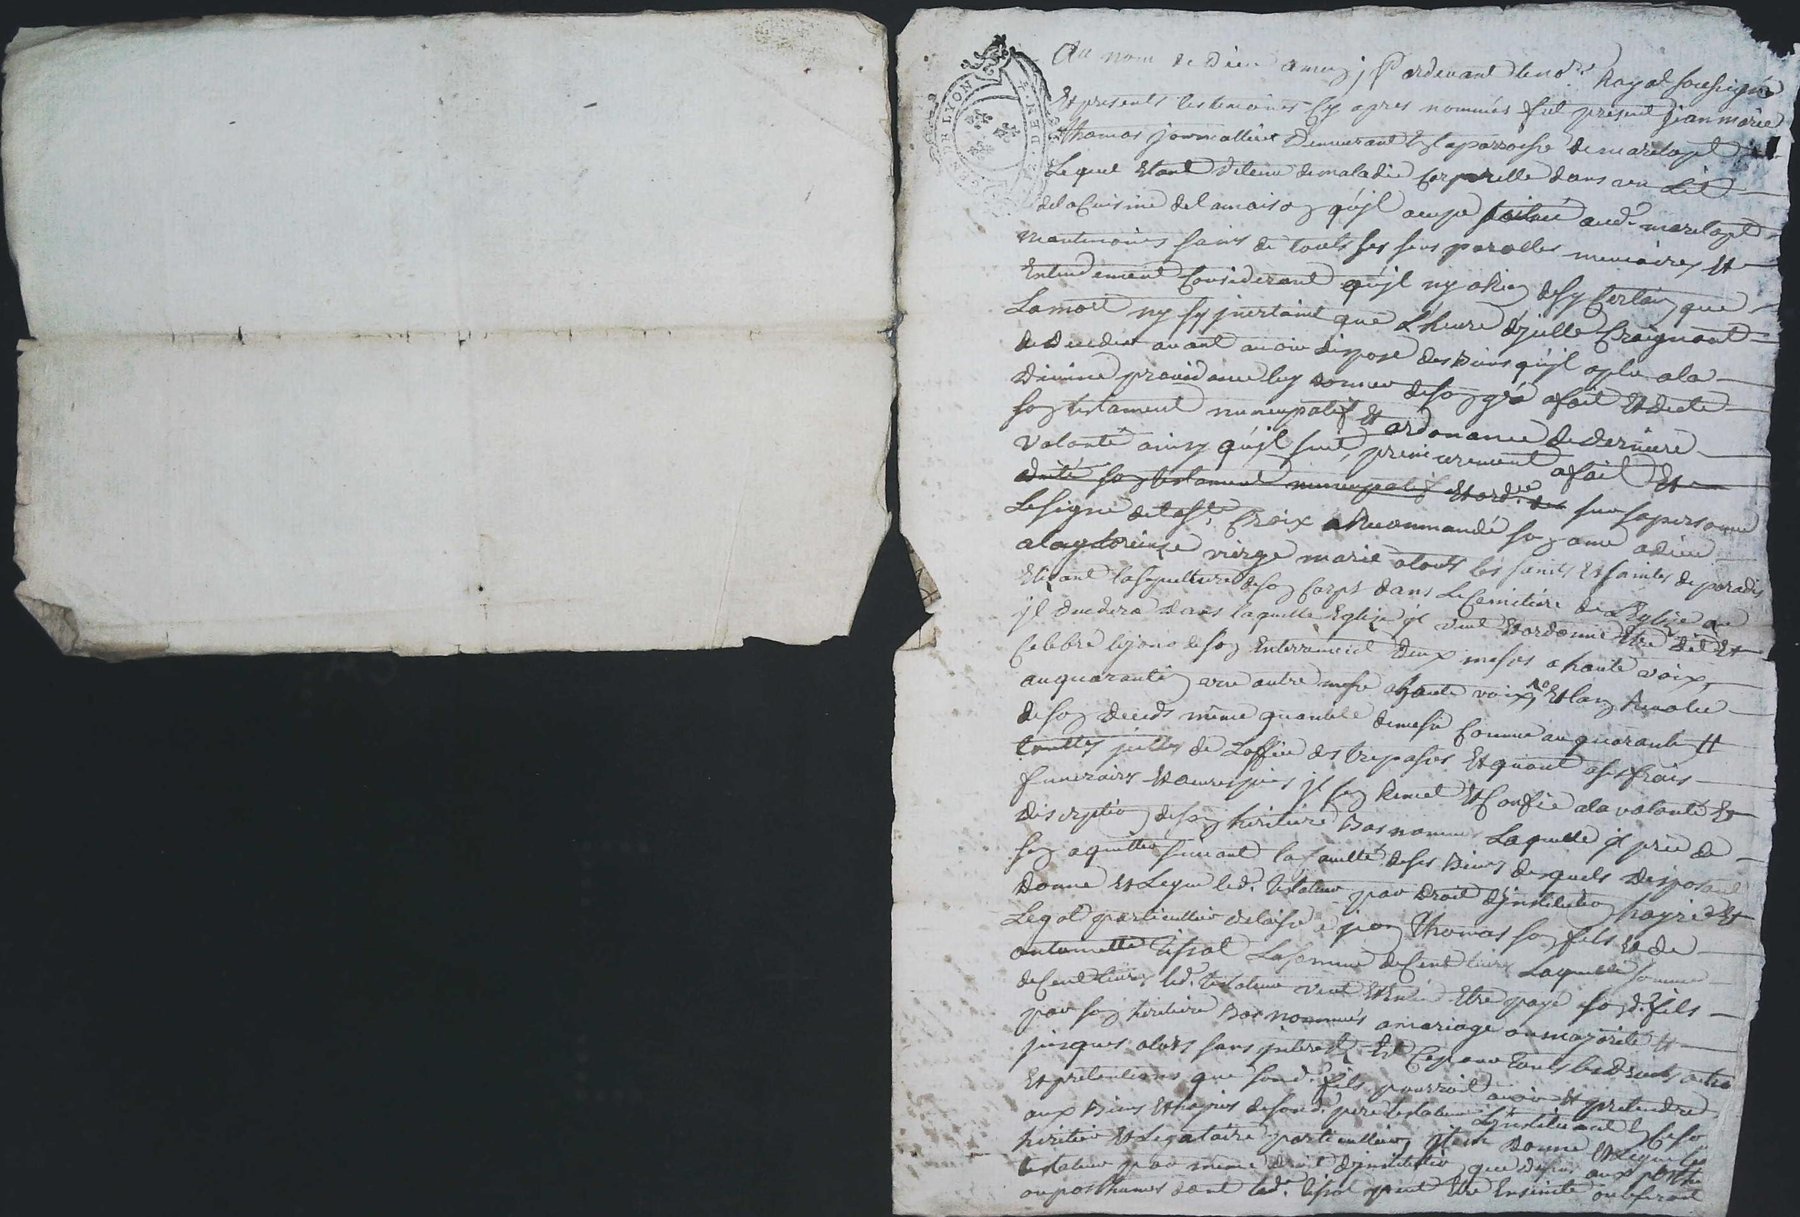 GEN. DE LYON
Au nom de Dieu amen, Pardevant le no.re Royal soussigné
Et presents les temoins cy apres nommés fut present jean marie
Thomas journallier Demeurant en la parroisse de marclopt
Lequel Etant detenu de maladie corporelle dans un Lit
de la Cuisine de la maison qu'il occupe audt. marclopt
neantmoins sains de touts ses sens parolles memoires Et
Entendement Considerant qu'jl ny a Rien de sy Certain que
La mort ny sy jncertaine que L'heure d'jcelle Craignant
de Deceder avant avoir dispose des Biens qu'jl a plu a la
Divine providence luy donner de son gré a fait Et dicté
son testament nuncupatif Et ordonance de derniere
volonté ainsy qu'jl suit, premierement a fait Et
dicté son testament nuncupatif Et ord.ce de sur sa personne
Le signe de la Ste. Croix a Recommandé son ame a dieu
a la glorieuse vierge marie a touts les saints Et saintes de paradis
Elisant la sepulture de son Corps dans Le Cemitiere de L'Eglise ou
jl decedera dans laquelle Eglise jl veut Et ordonne Etre dit Et
Celebré le jour de son Enterrement deux messes a haute voix,
au quarantin une autre messe a haute voix, Et lan Revolu
de son deceds même quantité de messe Comme au quarantin
touttes jcelles de Loffice des trepassés Et quant a ses frais
funeraires Et aumosnes jl sen Remet Et Confie a la volonté Et
discretion de son heritiere Bas nommée Laquelle jl prie de
sen aquitter suivant la faculté de ses Biens desquels disposant
donne Et Legue led. testateur par droit d'jnstitution hoyrie Et
Legat particullier delaissé a jean Thomas son fils Et de
antoinette tissot La somme de Cent livres Laquelle somme
de Cent livres led. testateur veut Et Entend Etre payé a sond. fils
par son heritiere Bas nommés a mariage ou majorité Et
jusques alors sans jnterest, Et Ce pour touts les droits
Et pretentions que sond. fils pourroit avoir Et pretendre
aux Biens Et hoyries de sond. pere testateur L'jnstituant
heritier Et Legataire particullier, jtem donne Et Legue led.
testateur par même droit d'jnstitution que dessus aux posthume
ou posthumes dont lad. tissot peut Etre Enceinte